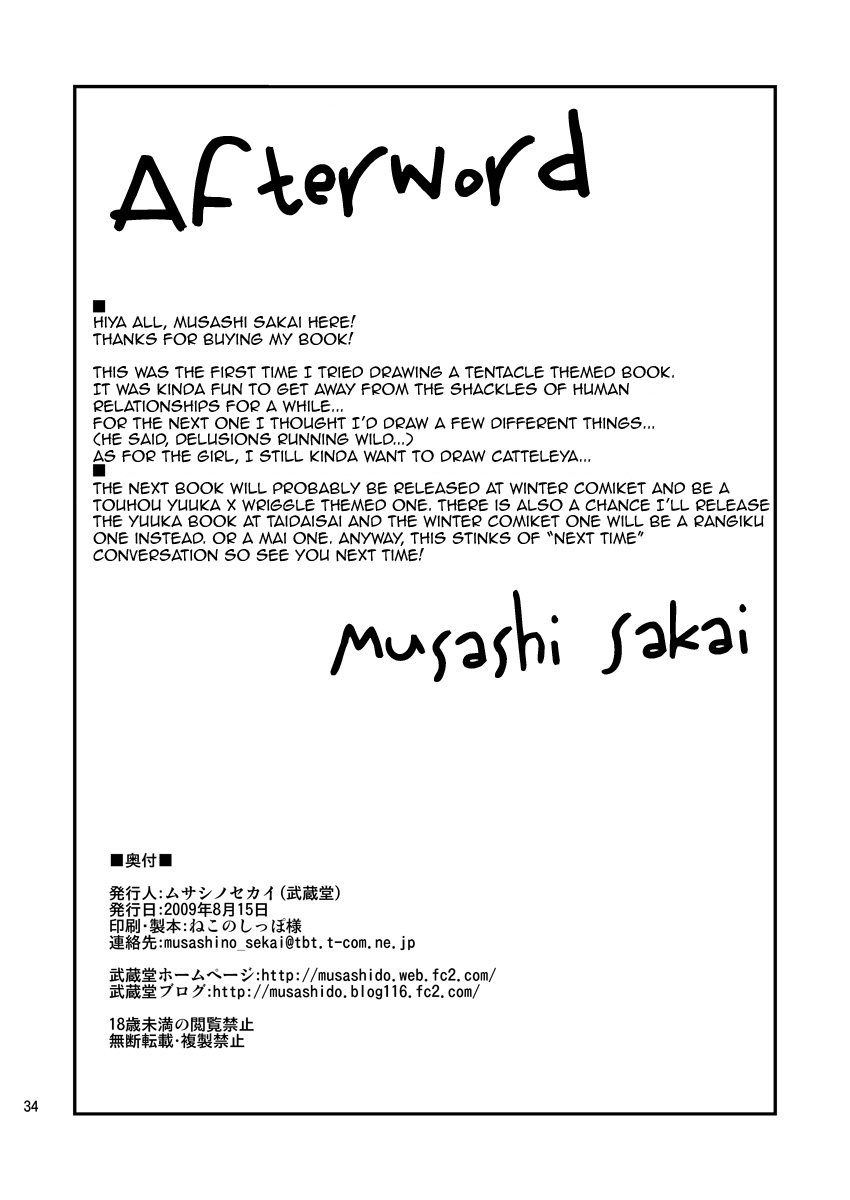 Afterword
■
HIYA ALL, MUSASHI SAKAI HERE!
THANKS FOR BUYING MY BOOK!
THIS WAS THE FIRST TIME I TRIED DRAWING A TENTACLE THEMED BOOK.
IT WAS KINDA FUN TO GET AWAY FROM THE SHACKLES OF HUMAN
RELATIONSHIPS FOR A WHILE...
FOR THE NEXT ONE I THOUGHT I'D DRAW A FEW DIFFERENT THINGS...
(HE SAID, DELUSIONS RUNNING WILD...)
AS FOR THE GIRL, I STILL KINDA WANT TO DRAW CATTELEYA...
■
THE NEXT BOOK WILL PROBABLY BE RELEASED AT WINTER COMIKET AND BE A
TOUHOU YUUKA X WRIGGLE THEMED ONE. THERE IS ALSO A CHANCE I'LL RELEASE
THE YUUKA BOOK AT TAIDAISAI AND THE WINTER COMIKET ONE WILL BE A RANGIKU
ONE INSTEAD. OR A MAI ONE. ANYWAY, THIS STINKS OF "NEXT TIME"
CONVERSATION SO SEE YOU NEXT TIME!
Musashi Sakai
■奥付■
発行人:ムサシノセカイ(武蔵堂)
発行日:2009年8月15日
印刷・製本:ねこのしっぽ様
連絡先:musashino_sekai@tbt.t-com.ne.jp
武蔵堂ホームページ:http://musashido.web.fc2.com/
武蔵堂ブログ:http://musashido.blog116.fc2.com/
18歳未満の閲覧禁止
無断転載・複製禁止
34